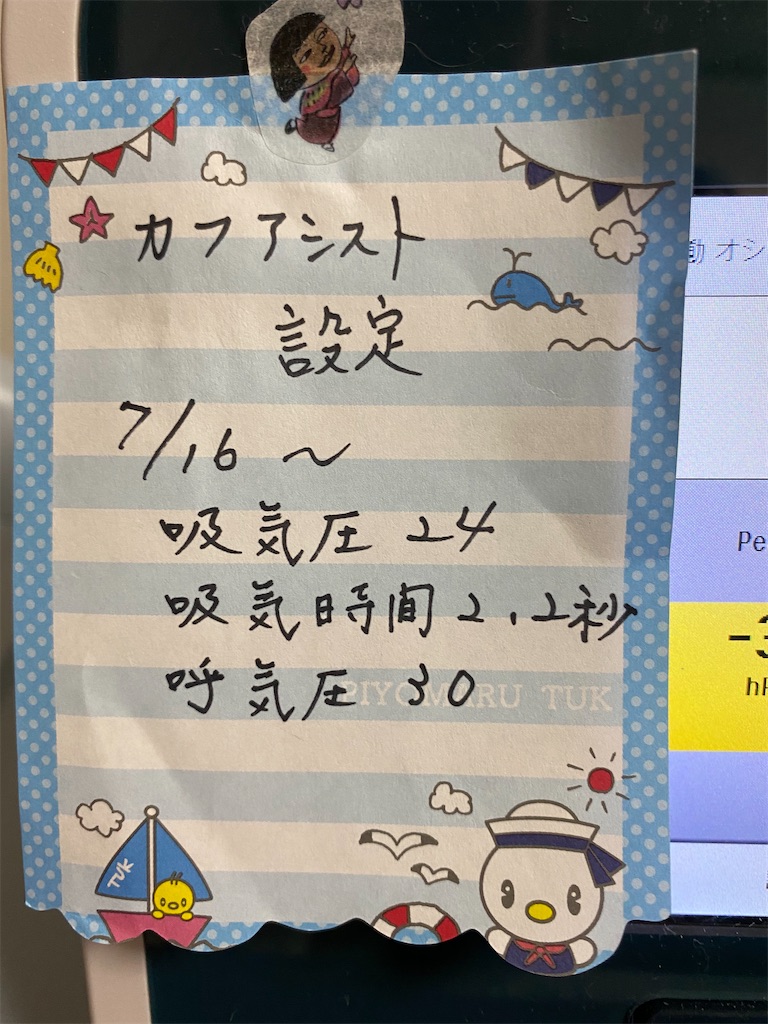 カフアシスト
動 オシ
設定
7/16 ～
吸気圧 24
Pe
吸気時間 2.2秒
-3
hP
呼気圧 30
PIYOMARU TUK
TUK